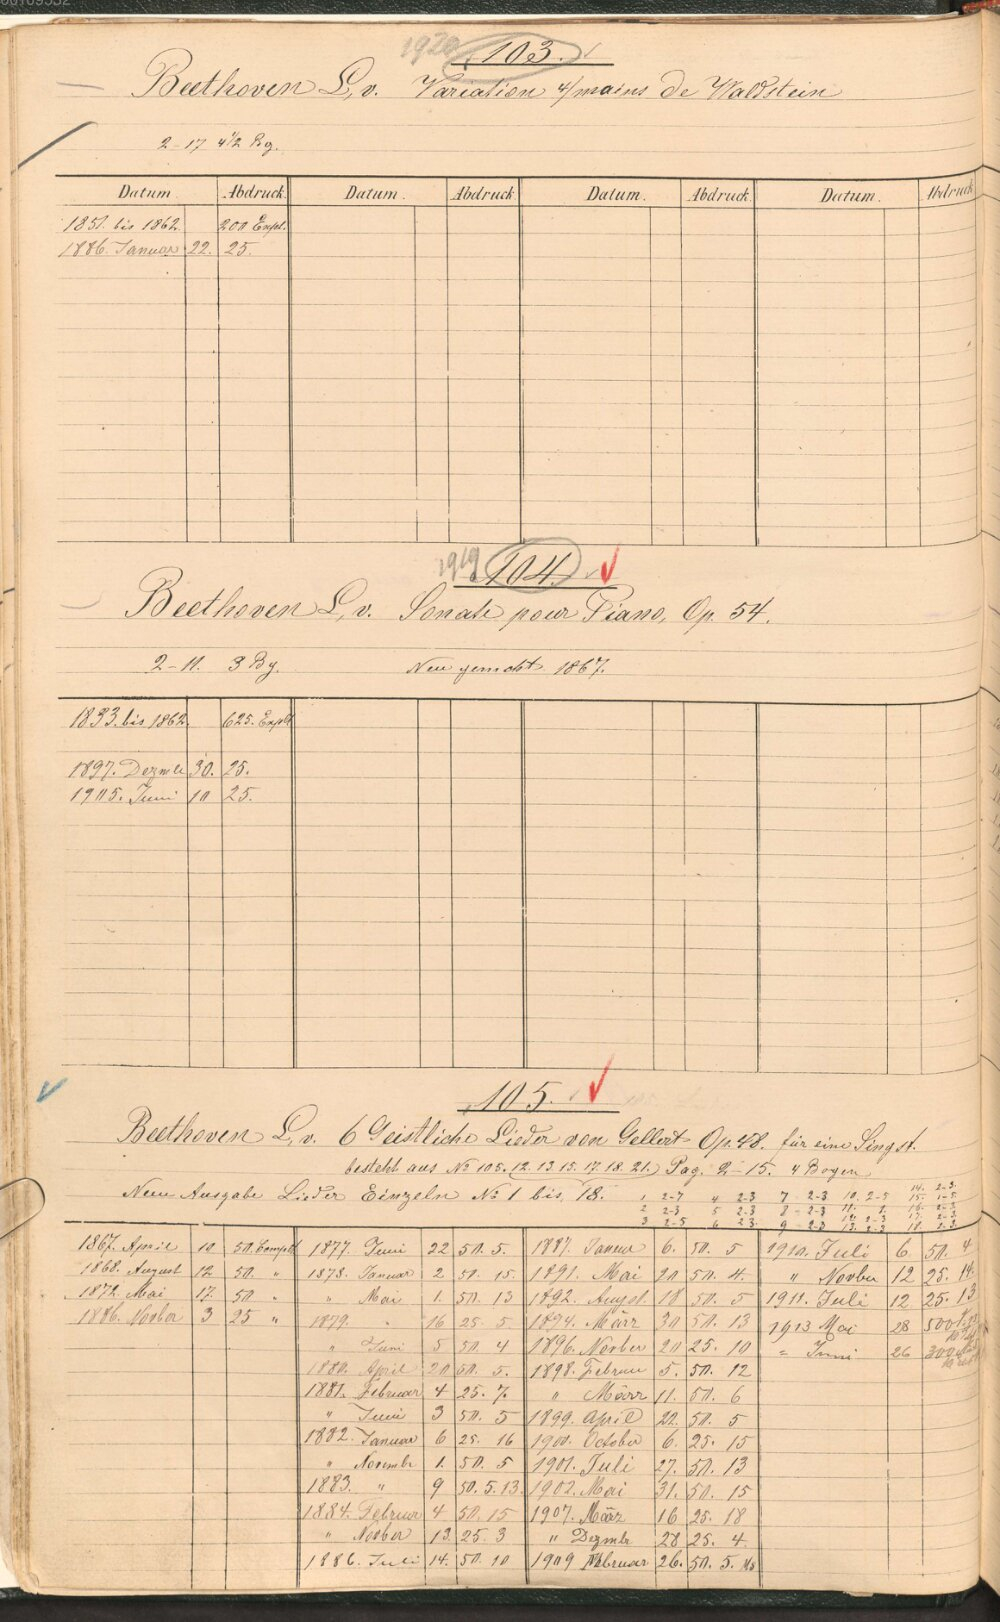 1920 103.
Beethoven L. v. Variation 4/mains de Waldstein
2-17 4 1/2 Bg.
Datum Abdruck. Datum. Abdruck. Datum. Abdruck. Datum. Abdruck
1851. bis 1862. 200 Expl.
1886. Januar 22. 25.
1919 104.
Beethoven L. v. Sonate pour Piano, Op. 54.
2-11. 3 Bg. Neu gemacht 1867.
1833. bis 1862. 625. Explr
1897. Dezmbr 30. 25.
1905. Juni 10 25.
105.
Beethoven L. v. 6 Geistliche Lieder von Gellert Op. 48. für eine Singst.
besteht aus No 105. 12. 13. 15. 17. 18. 21. Pag. 2-15. 4 Bogen
Neue Ausgabe Lieder Einzeln No 1 bis 18.
1 2-7 4 2-3 7 2-3 10. 2-5 14. 2-3.
2 2-3 5 2-3 8 - 2-3 11. 15. 1-5
3 2-5 6 2-3 9 - 2-3 12. 2-3 16. 2-3
13. 2-3 17. 2-3
18. 2-3.
1867. April 10 50. Complt
1868. August 12 50. "
1872. Mai 17. 50 "
1886. Novber 3 25 "
1877. Juni 22 50. 5.
1878. Januar 2 50. 15.
" Mai 1. 50. 13
1879. " 16 25. 5
" Juni 5 50. 4
1880. April 20 50. 5.
1881. Februar 4 25. 7.
" Juni 3 50. 5
1882. Januar 6 25. 16
" Novembr 1. 50. 5
1883. " 9 50. 5. 13.
1884. Februar 4 50. 15
" Novber 13. 25. 3
1886. Juli 14. 50. 10
1887. Januar 6. 50. 5
1891. Mai 20 50. 4.
1892. Augst. 18 50. 5
1894. März 30 50. 13
1896. Novber 20 25. 10
1898. Februar 5. 50. 12
" März 11. 50. 6
1899. April 22. 50. 5
1900. October 6. 25. 15
1901. Juli 27. 50. 13
1902. Mai 31. 50. 15
1907. März 16 25. 18
" Dezmbr 28 25. 4.
1909 Februar 26. 50. 5.
1910. Juli 6. 50. 4
" Novber 12 25. 14.
1911. Juli 12 25. 13
1913 Mai 28 500
" Juni 26 300